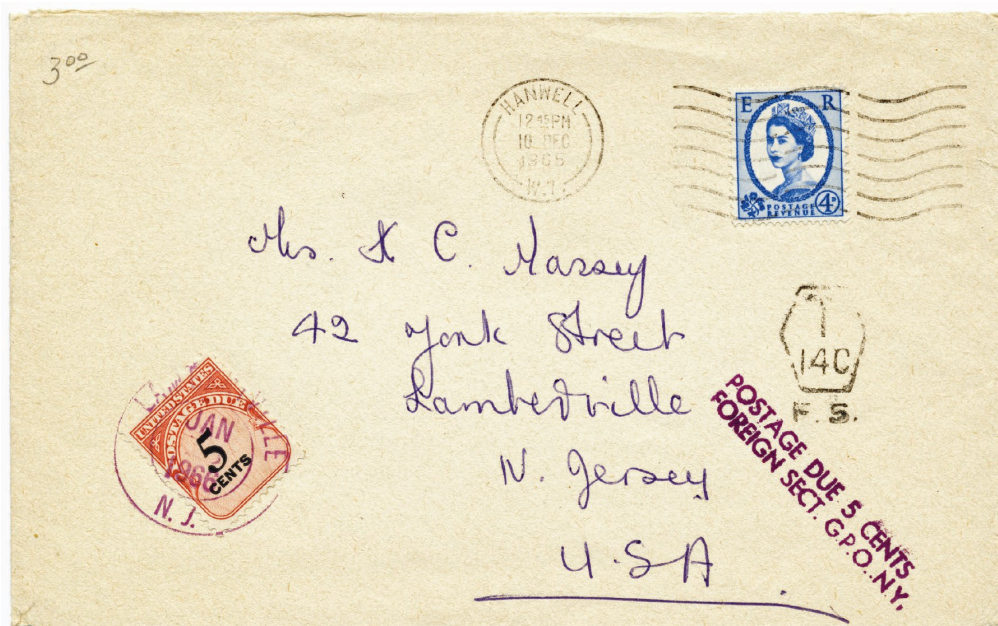 3.00
HANWELL
12 45 PM
10 DEC
1965
W.7.
E R
POSTAGE
REVENUE
4D
Mrs. K C. Karsey
42 York Street
Lambertville
N. Jersey
U.S.A
T
14C
F.S.
POSTAGE DUE 5 CENTS
FOREIGN SECT. G.P.O. N.Y.
UNITED STATES
POSTAGE DUE
5
CENTS
JAN
1966
N.J.